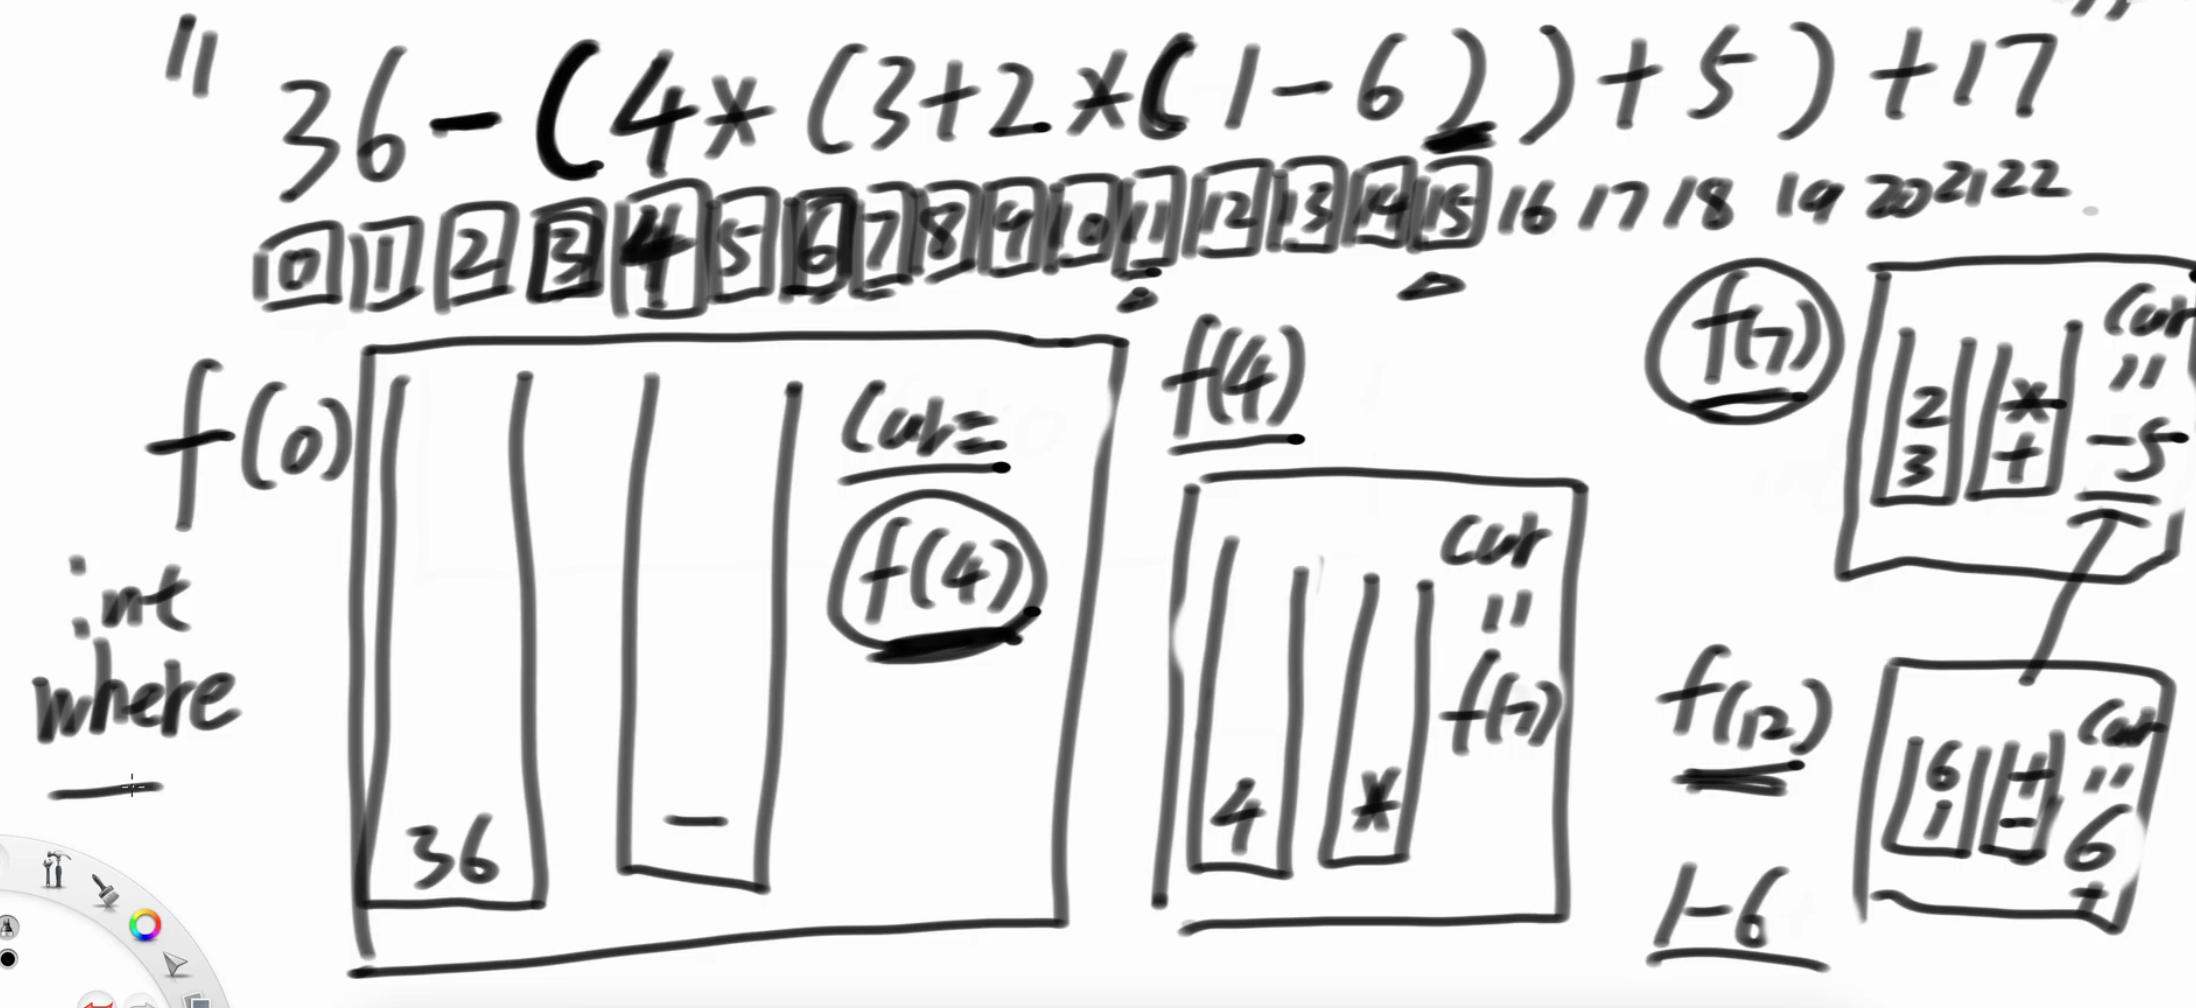 " 36-(4*(3+2*(1-6))+5)+17 "
0 1 2 3 4 5 6 7 8 9 10 11 12 13 14 15 16 17 18 19 20 21 22
f(0)
36
-
cur=
f(4)
int
where
f(4)
4
*
cur
"
f(7)
f(7)
2 *
3 +
cur
"
-5
f(12)
6 +
1 -
cur
"
6
1-6